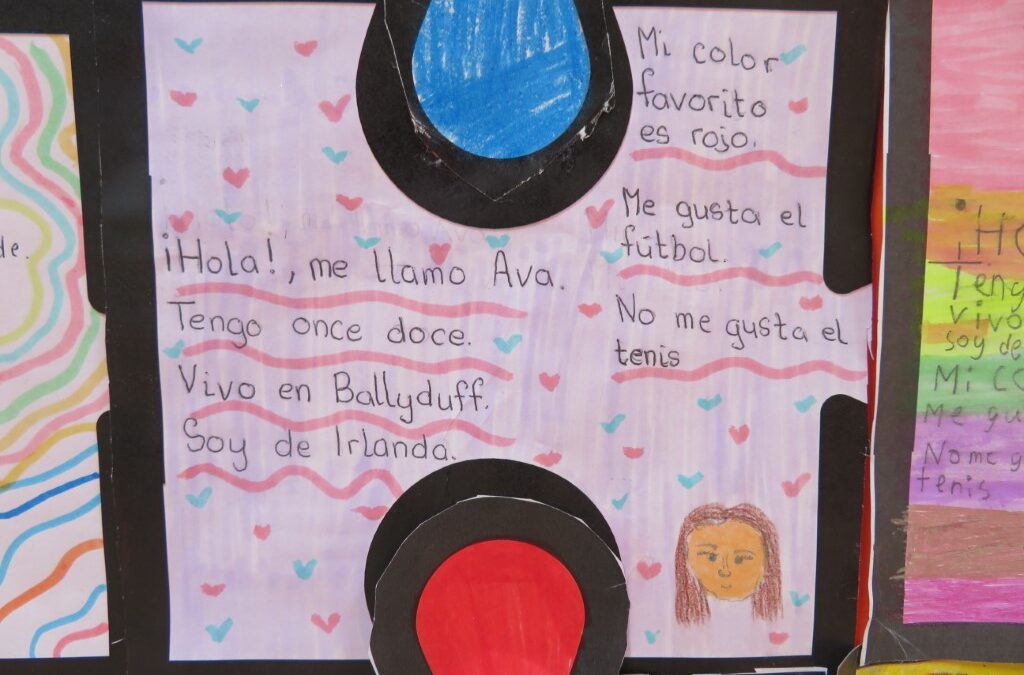 de.
¡Hola!, me llamo Ava.
Tengo once doce.
Vivo en Ballyduff.
Soy de Irlanda.
Mi color
favorito
es rojo.
Me gusta el
fútbol.
No me gusta el
tenis
¡Ho
Teng
vivo
soy de
Mi co
Me gu
No me g
tenis